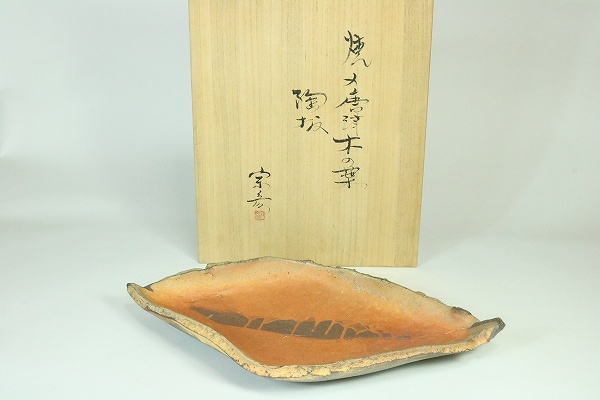 焼〆唐津木の葉
陶板
宗彦